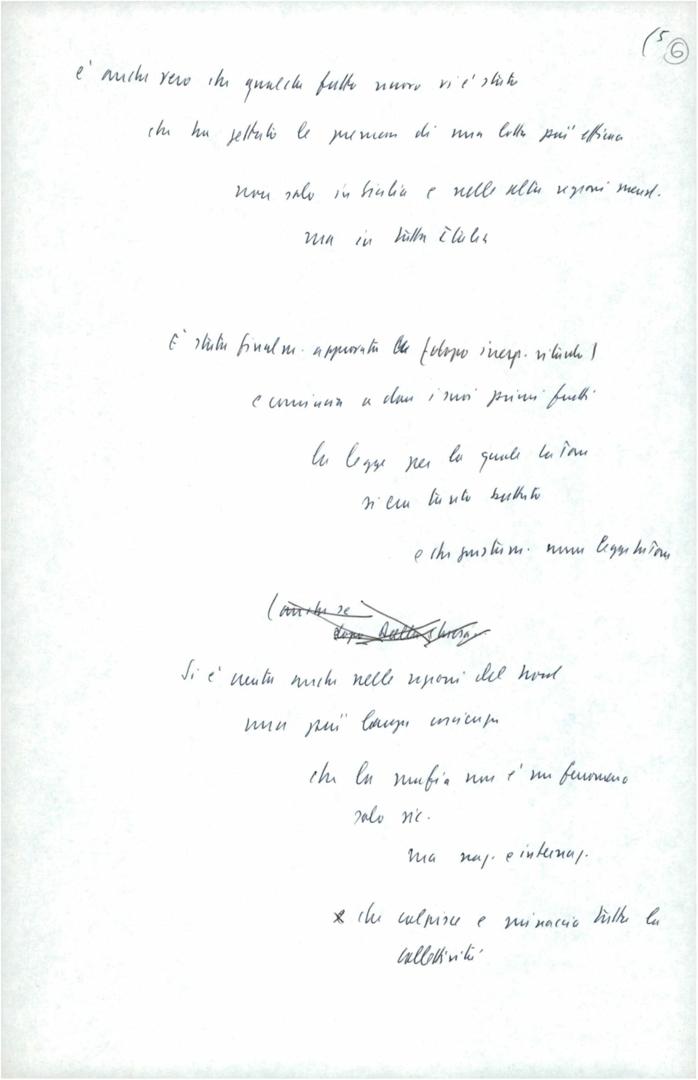 (5 6
è anche vero che qualche fatto nuovo vi è stato
che ha gettato le premesse di una lotta più efficace
non solo in Sicilia e nelle altre regioni merid.
ma in tutta Italia
È stata finalm. approvata la (dopo inesp. ritardo)
e comincia a dare i suoi primi frutti
la legge per la quale La Torre
si era tanto battuto
e che giustam. legge La Torre
(anche se
dopo Dalla Chiesa
Si è creata anche nelle regioni del Nord
una più larga coscienza
che la mafia non è un fenomeno
solo sic.
ma naz. e internaz.
che colpisce e minaccia tutta la
collettività